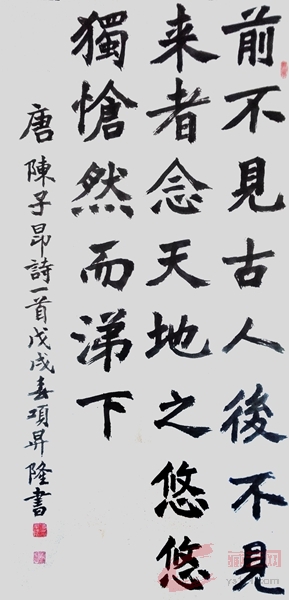 前不見古人後不見
来者念天地之悠悠
獨愴然而涕下
唐陳子昂詩一首戊戌春項昇隆書